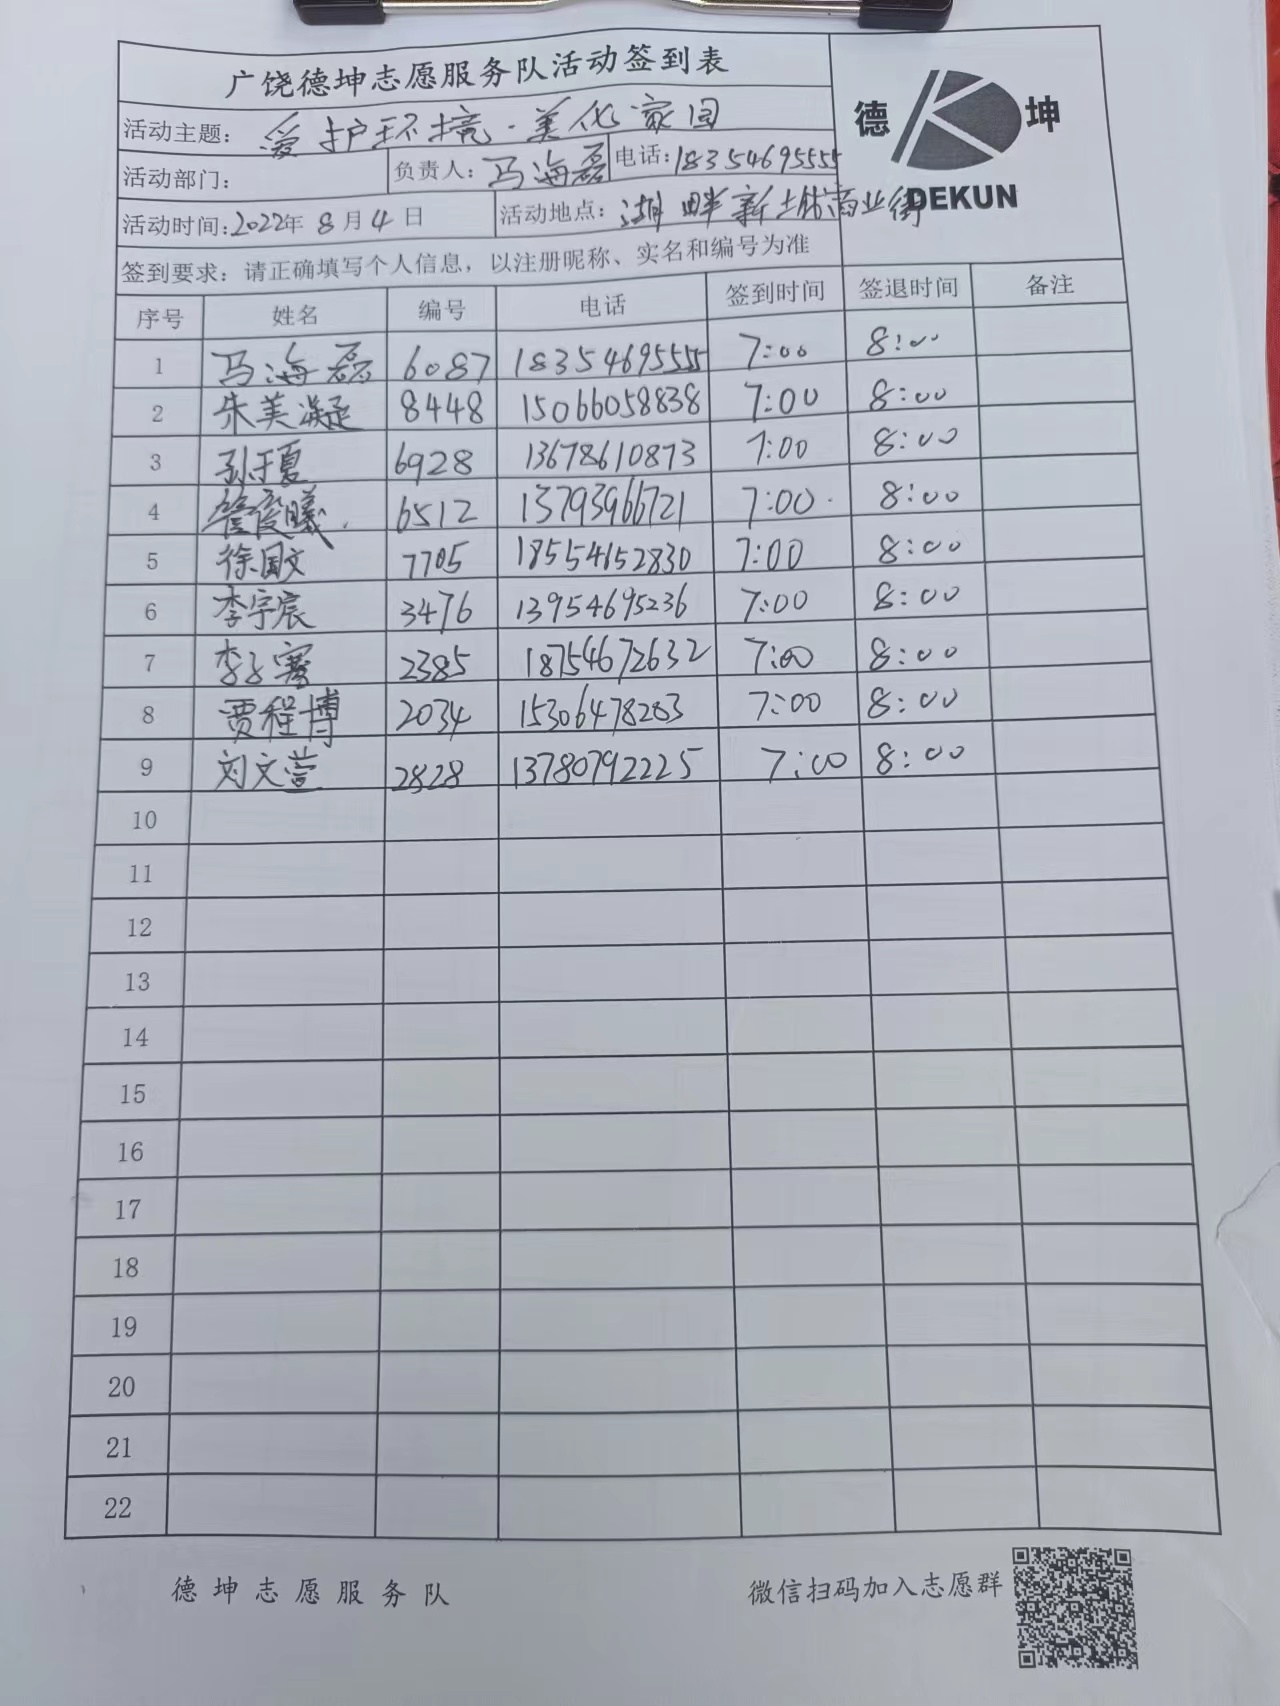 广饶德坤志愿服务队活动签到表
德 坤
DEKUN
活动主题: 爱护环境·美化家园
活动部门: 负责人: 马海磊 电话: 18354695555
活动时间: 2022年 8月4日 活动地点: 湖畔新城商业街
签到要求: 请正确填写个人信息, 以注册昵称、实名和编号为准
序号 姓名 编号 电话 签到时间 签退时间 备注
1 马海磊 6087 18354695555 7:00 8:00
2 朱美凝 8448 15066058838 7:00 8:00
3 孙于夏 6928 13678610873 7:00 8:00
4 6512 13793966721 7:00 8:00
5 徐国文 7705 18554652830 7:00 8:00
6 李宇宸 3476 13954695236 7:00 8:00
7 李子骞 2385 18754672632 7:00 8:00
8 贾程博 2034 15306478283 7:00 8:00
9 刘文萱 2828 13780792225 7:00 8:00
10
11
12
13
14
15
16
17
18
19
20
21
22
德坤志愿服务队 微信扫码加入志愿群